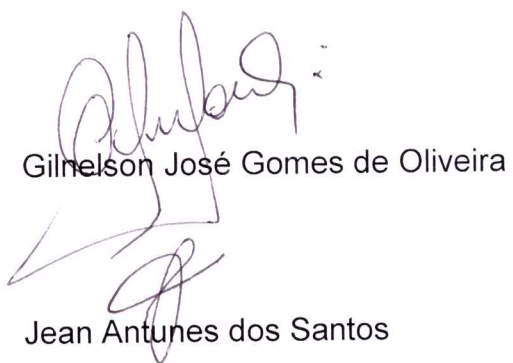 Gilnelson José Gomes de Oliveira
Jean Antunes dos Santos